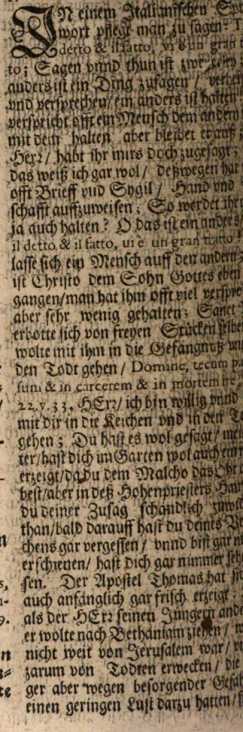 IN einem Italianischen
wort pflegt man zu sagen:
detto & il fatto, vi è un gran
to; Sagen vnnd thun ist
anders ist ein Ding zusagen /
vnd versprechen / ein anders ist halten
verspricht offt ein Mensch dem andern
mit dem halten aber bleibet er auß
Herr / habt ihr mirs doch zugesagt;
das weiß ich gar wol / deßwegen hat
offt Brieff vnd Sygil / Hand vnd
schafft auffzuweisen; So werdet ihr
ja auch halten? O das ist ein anders
il detto & il fatto, ui è un gran tratto
lasse sich ein Mensch auff den andern
ist Christo dem Sohn Gottes eben
gangen / man hat ihm offt viel
aber sehr wenig gehalten; Sanct
erbotte sich von freyen Stücken selbst
wolte mit ihm in die Gefängnuß
den Todt gehen / Domine, tecum
sum & in carcerem & in mortem ire
22. v. 33. HErr / ich bin willig vnnd
mit dir in die Keichen vnd in den
gehen; Du hast es wol gesagt /
ter / hast dich im Garten wol auch
erzeigt / da du dem Malcho das Ohr
hast / aber in deß Hohenpriesters
du deiner Zusag schändlich
than / bald darauff hast du deines
chens gar vergessen / vnnd bist gar
erschienen / hast dich gar nimmer
sen. Der Apostel Thomas hat
auch anfänglich gar frisch erzeigt
als der HErr seinen Jüngern
er wolte nach Bethaniam ziehen /
nicht weit von Jerusalem war /
zarum von Todten erwecken / die
ger aber wegen besorgender Gefahr
einen geringen Lust darzu hatten /